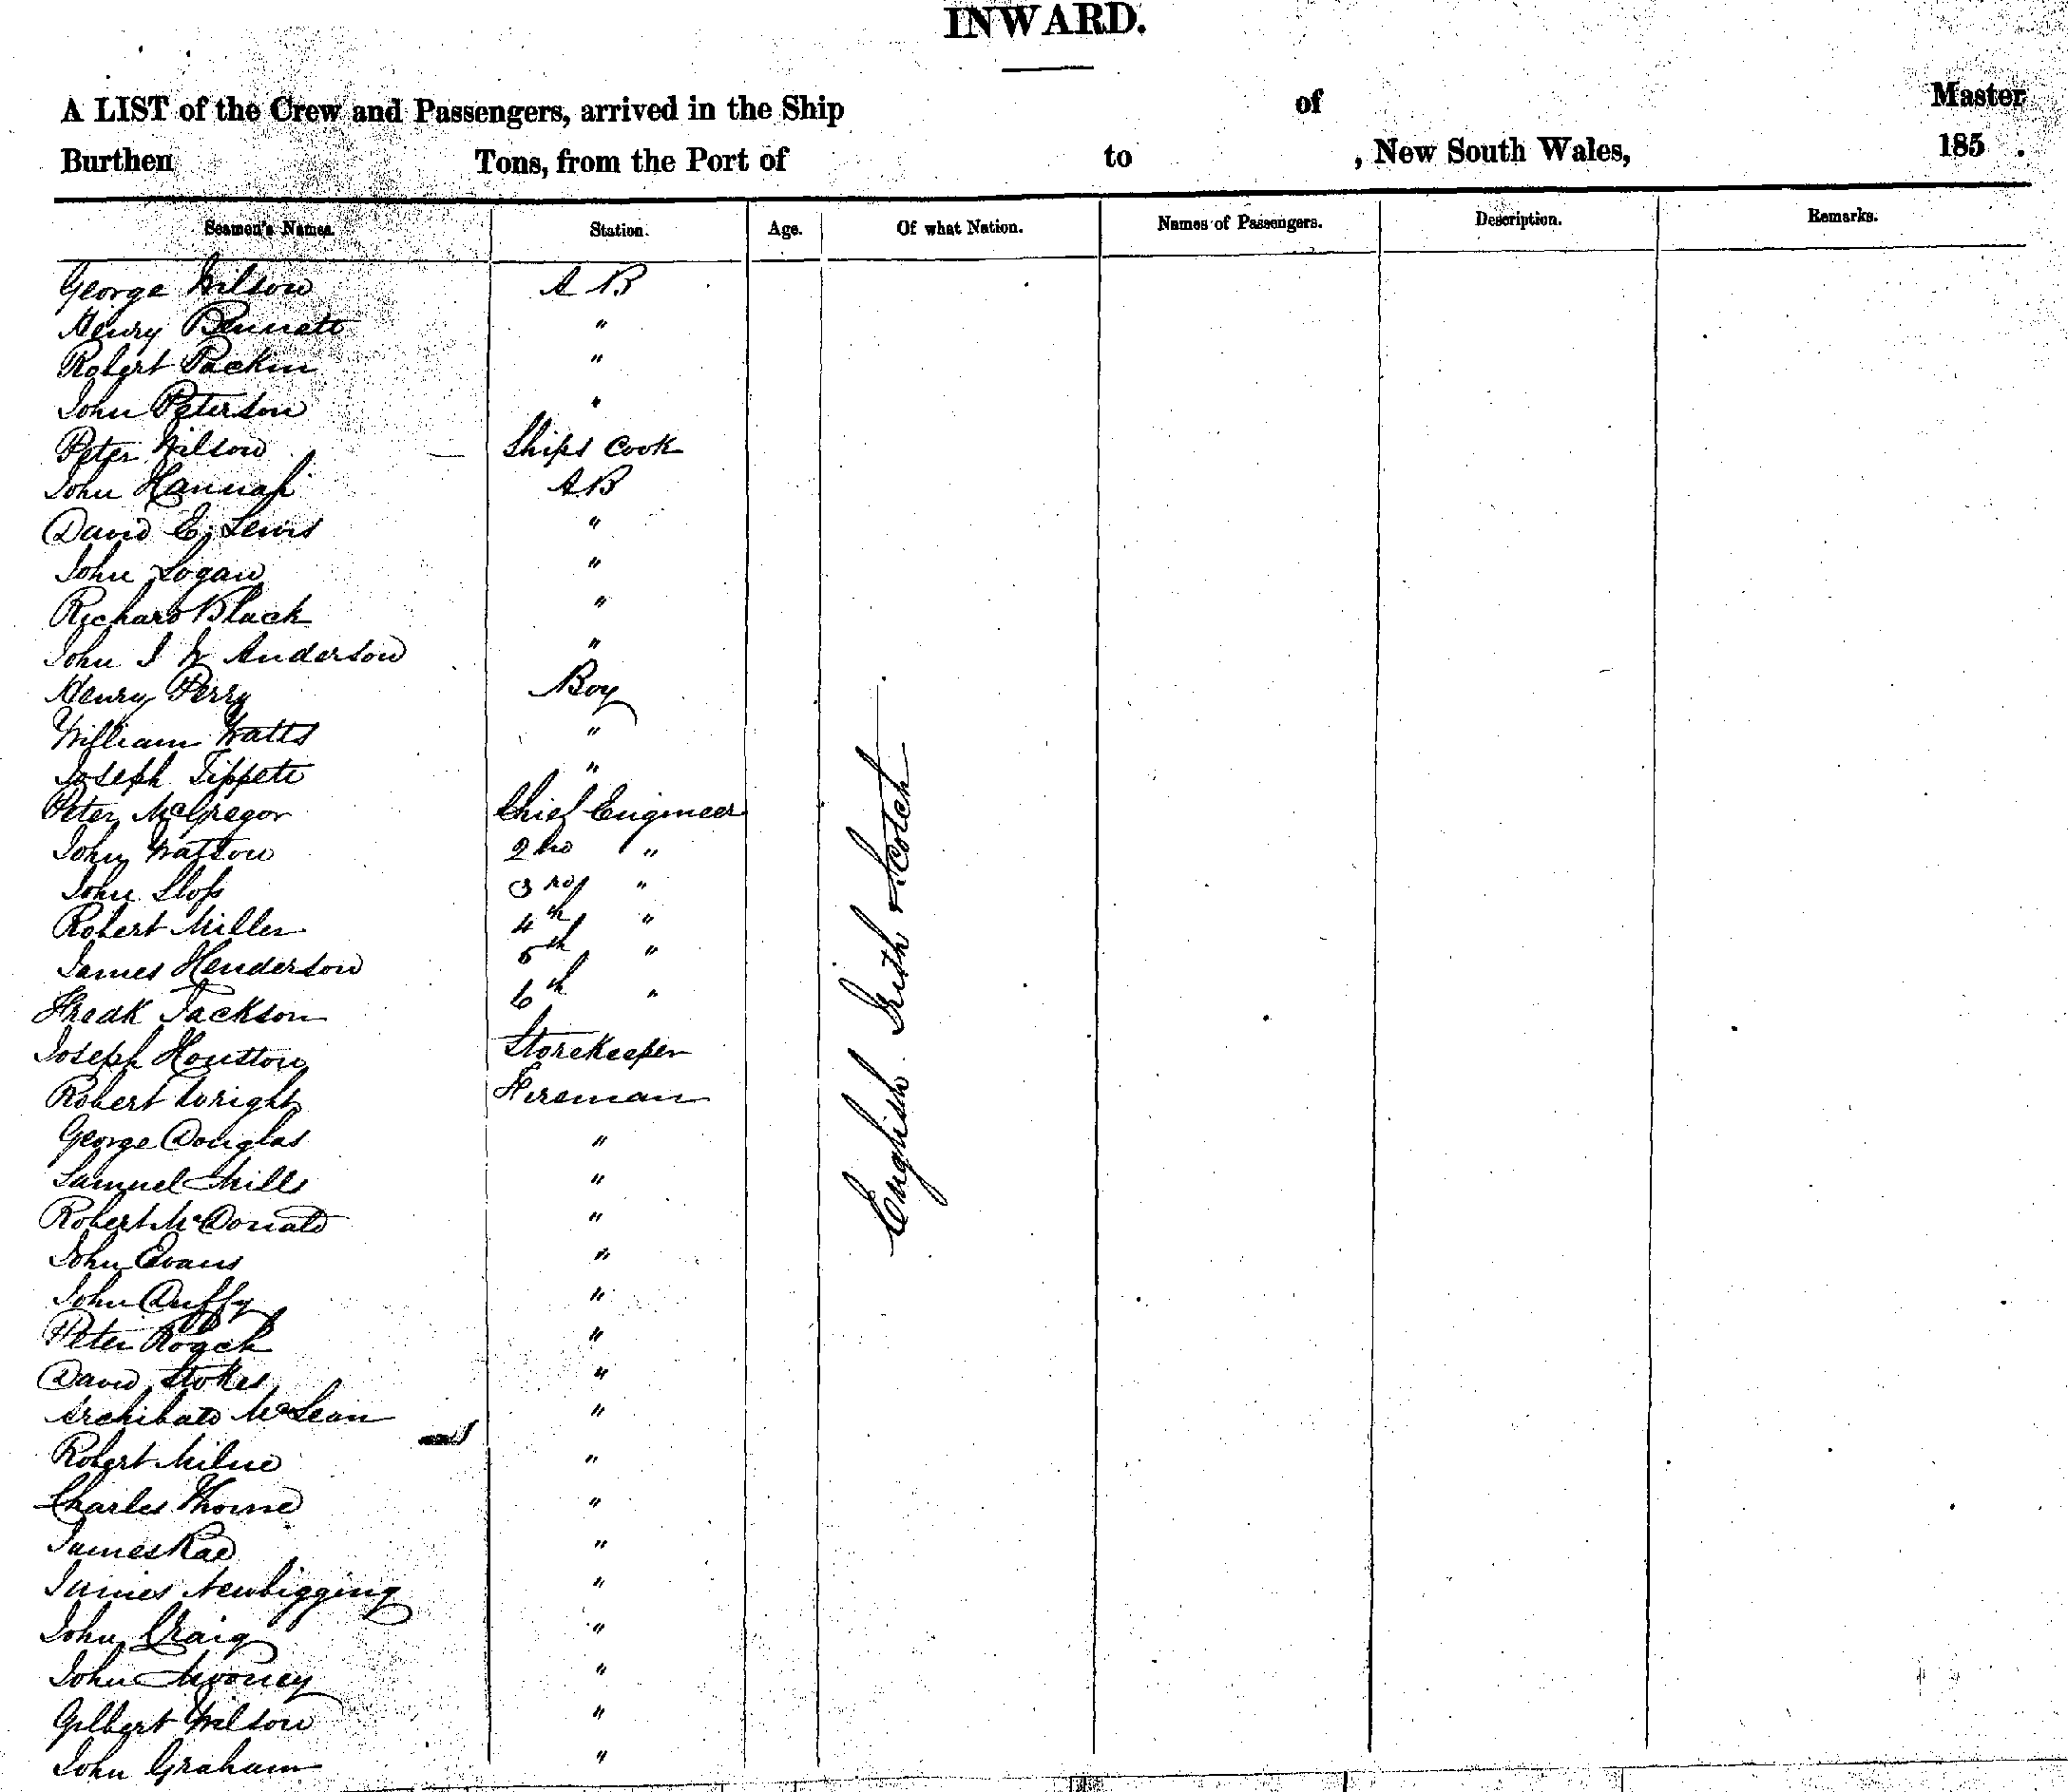 INWARD.
A LIST of the Crew and Passengers, arrived in the Ship of Master
Burthen Tons, from the Port of to , New South Wales, 185 .
Seamen's Names. Station. Age. Of what Nation. Names of Passengers. Description. Remarks.
George Wilson A B
Henry Bennett "
Robert Packin "
John Peterson "
Peter Wilson Ships Cook
John Hannah A B
David E. Lewis "
John Logan "
Richard Black "
John J W Anderson "
Henry Perry Boy
William Watts "
Joseph Tippett "
Peter McGregor Chief Engineer
John Watson 2nd "
John Sloss 3rd "
Robert Miller 4th "
James Henderson 5th "
Fredk Jackson 6th "
Joseph Houston Storekeeper
Robert Wright Fireman
George Douglas "
Samuel Mills "
Robert McDonald "
John Evans "
John Duffy "
Peter Roach "
David Stokes "
Archibald McLean "
Robert Milne "
Charles Thorne "
James Rae "
James Newbigging "
John Craig "
John Mooney "
Gilbert Wilson "
John Graham "
English Irish & Scotch